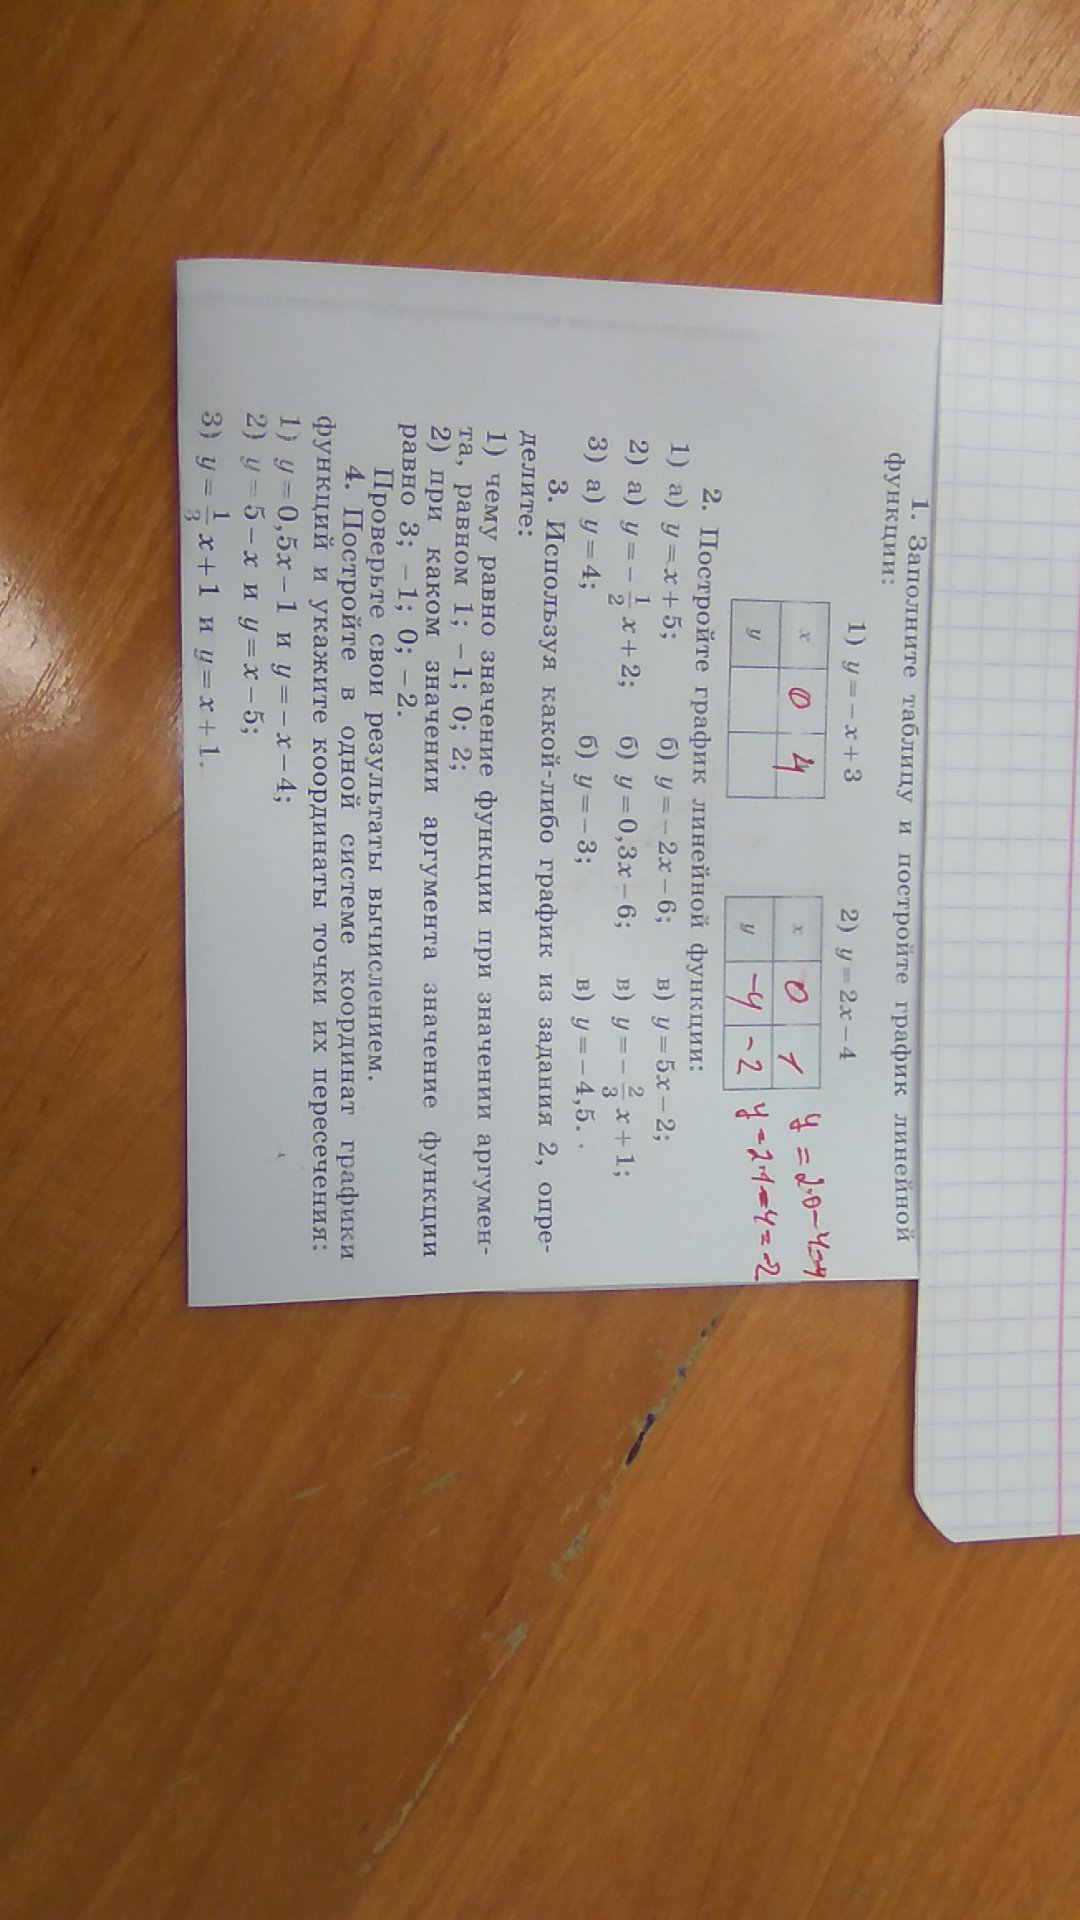 1. Заполните таблицу и постройте график линейной
функции:
1) y = − x + 3 2) y = 2x − 4
x 0 4 x 0 1 y = 2·0−4=-4
y y -4 -2 y = 2·1−4=-2
2. Постройте график линейной функции:
1) а) y = x + 5; б) y = − 2x − 6; в) y = 5x − 2;
2) а) y = − 1/2 x + 2; б) y = 0,3x − 6; в) y = − 2/3 x + 1;
3) а) y = 4; б) y = − 3; в) y = − 4,5.
3. Используя какой-либо график из задания 2, опре-
делите:
1) чему равно значение функции при значении аргумен-
та, равном 1; −1; 0; 2;
2) при каком значении аргумента значение функции
равно 3; −1; 0; −2.
Проверьте свои результаты вычислением.
4. Постройте в одной системе координат графики
функций и укажите координаты точки их пересечения:
1) y = 0,5x − 1 и y = − x − 4;
2) y = 5 − x и y = x − 5;
3) y = 1/3 x + 1 и y = x + 1.